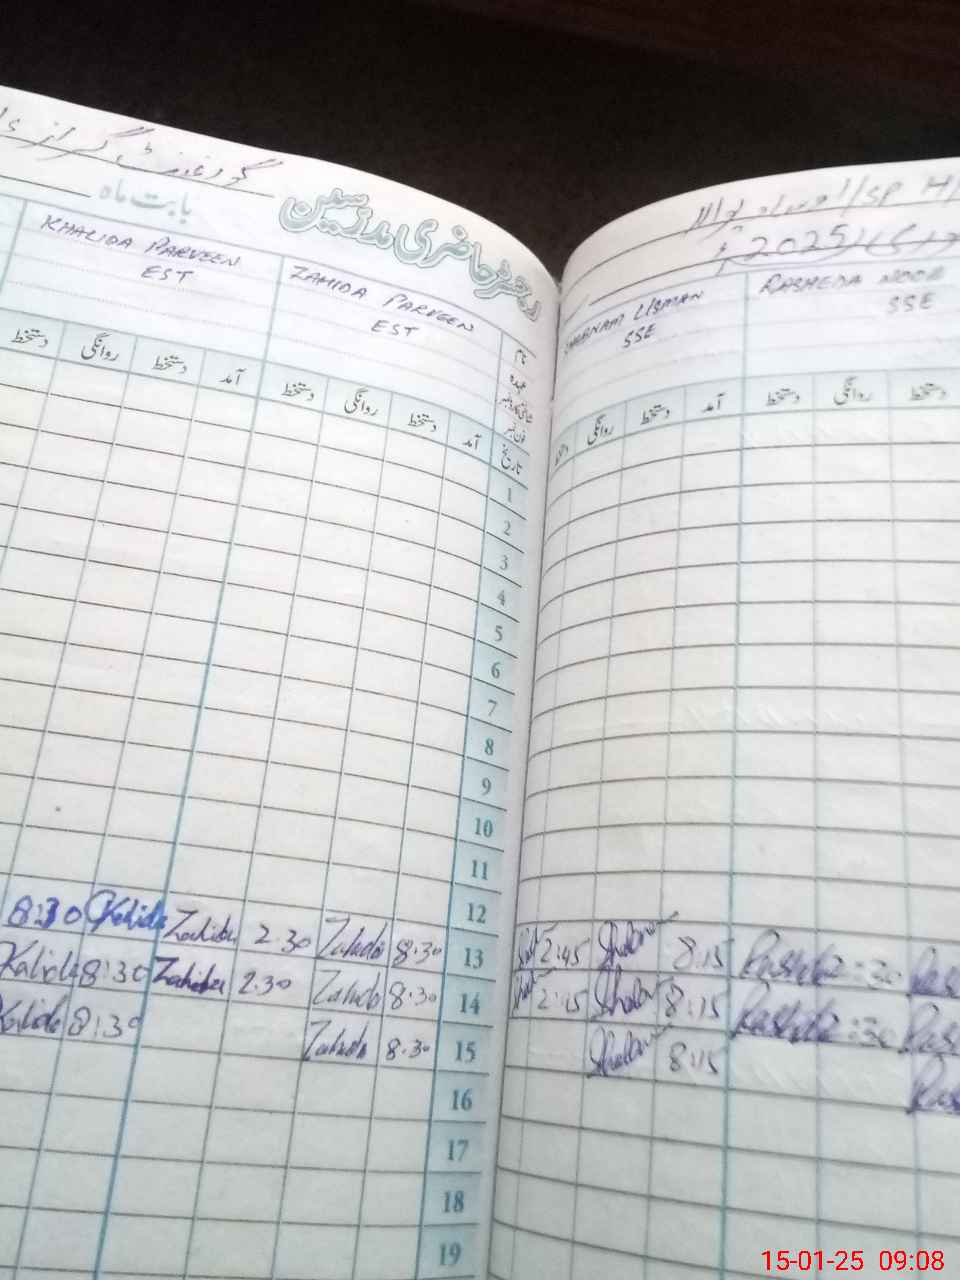 گورنمنٹ گرلز ہائی
رجسٹر حاضری مدرسین
بابت ماہ
KHALIDA PARVEEN
EST
ZAHIDA PARVEEN
EST
نام
عہدہ
شناختی کارڈ نمبر
فون نمبر
دستخط روانگی دستخط آمد دستخط روانگی دستخط آمد تاریخ
1
2
3
4
5
6
7
8
9
10
11
12
8:30 Kalida Zahida 2.30 Zahida 8.30 13
Kalida 8:30 Zahida 2.30 Zahida 8.30 14
Kalida 8:30 Zahida 8.30 15
16
17
18
19
/SP H
2025
SHABNAM USMAN
SSE
RASHEDA NOOR
SSE
روانگی دستخط آمد دستخط روانگی دستخط
2:45 8.15 2:30
2:45 8:15 2:30
8:15
15-01-25 09:08